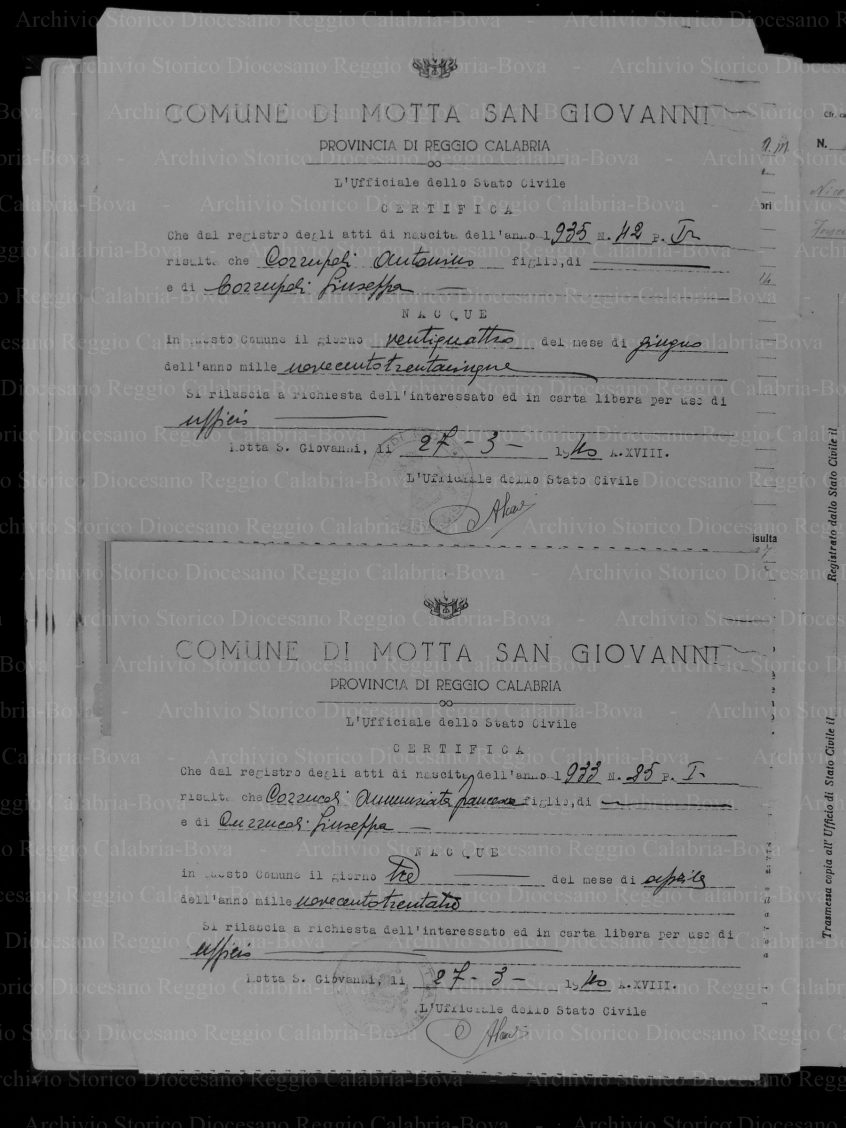 COMUNE DI MOTTA SAN GIOVANNI
PROVINCIA DI REGGIO CALABRIA
L'Ufficiale dello Stato Civile
CERTIFICA
Che dal registro degli atti di nascita dell'anno 1935 N. 42 P. I
risulta che Antonino figlio, di
e di Giuseppa
NACQUE
in questo Comune il giorno ventiquattro del mese di giugno
dell'anno mille novecentotrentacinque
Si rilascia a richiesta dell'interessato ed in carta libera per uso di
ufficio
Motta S. Giovanni, li 27-3- 1940 A.XVIII.
L'Ufficiale dello Stato Civile
COMUNE DI MOTTA SAN GIOVANNI
PROVINCIA DI REGGIO CALABRIA
L'Ufficiale dello Stato Civile
CERTIFICA
Che dal registro degli atti di nascita dell'anno 1933 N. 25 P. I
risulta che Annunziata figlio, di
e di Giuseppa
NACQUE
in questo Comune il giorno tre del mese di aprile
dell'anno mille novecentotrentatre
Si rilascia a richiesta dell'interessato ed in carta libera per uso di
ufficio
Motta S. Giovanni, li 27-3- 1940 A.XVIII.
L'Ufficiale dello Stato Civile
isulta
N.
Registrato dallo Stato Civile il
Trasmessa copia all'Ufficio di Stato Civile il
Archivio Storico Diocesano Reggio Calabria-Bova